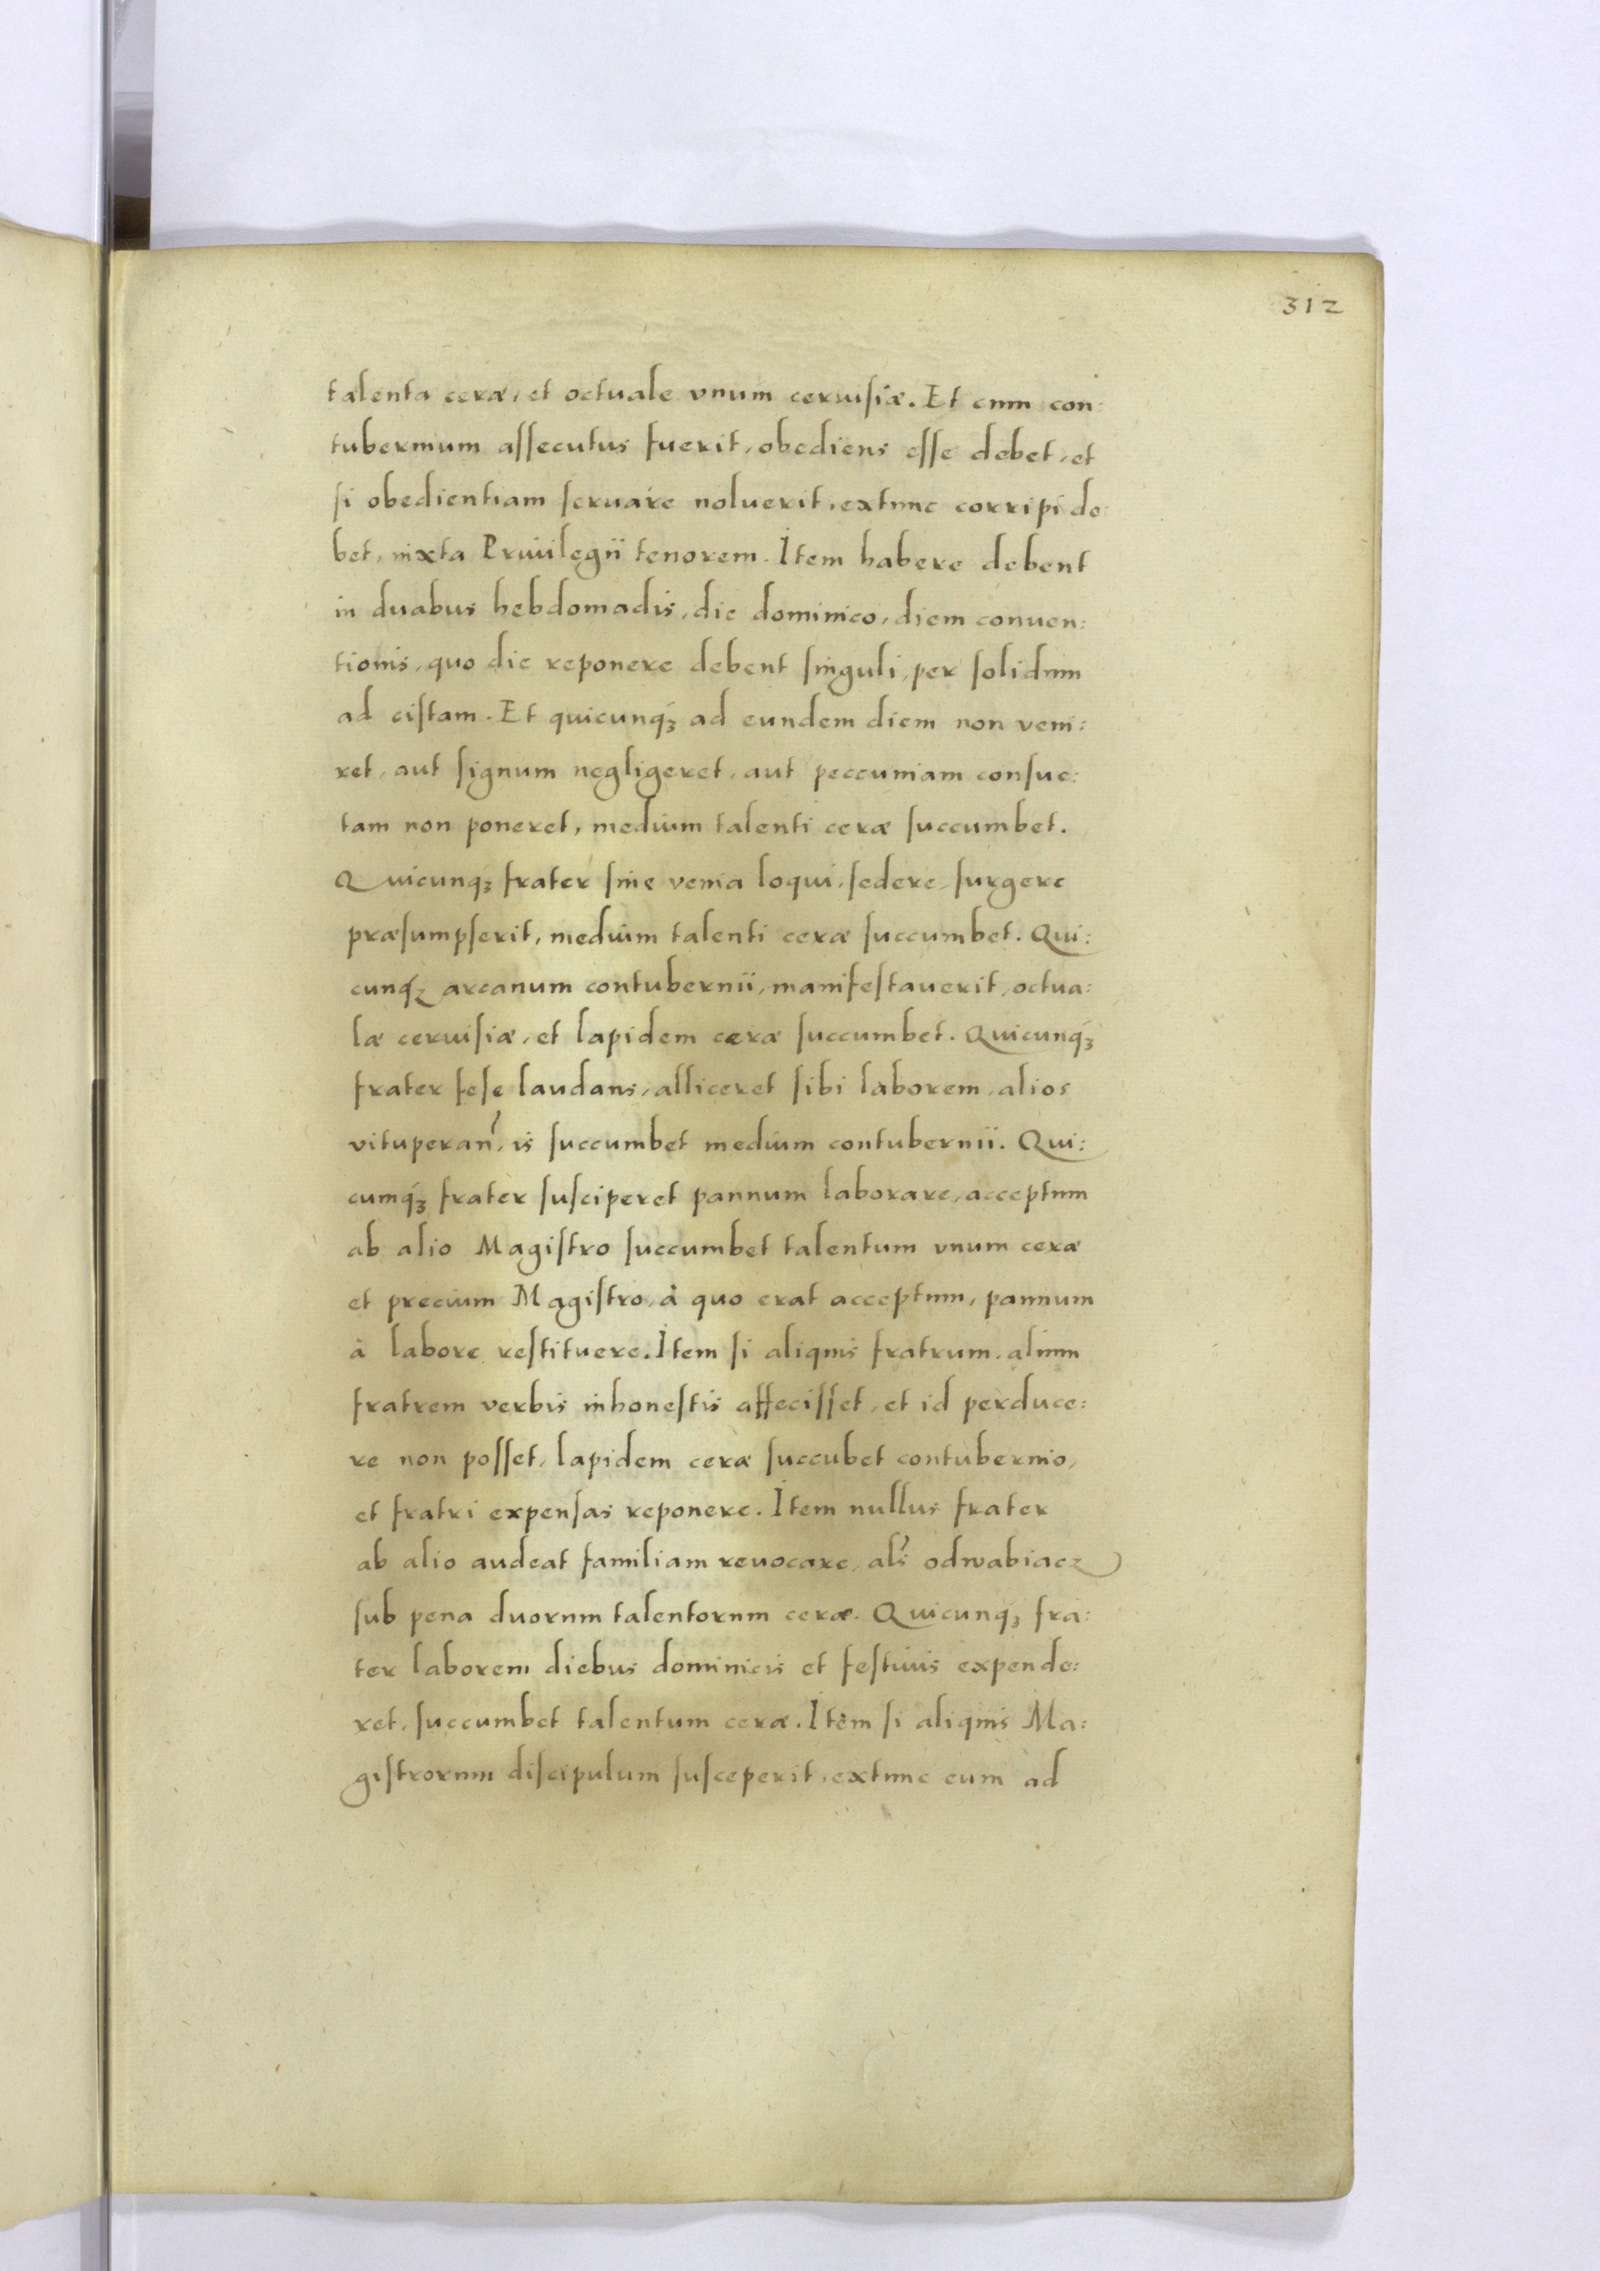 312
talenta ceræ, et octuale vnum ceruisiæ. Et cum con:
tubernium assecutus fuerit, obediens esse debet, et
si obedientiam seruare noluerit, extunc corripi de:
bet, iuxta Priuilegii tenorem. Item habere debent
in duabus hebdomadis, die dominico, diem conuen:
tionis, quo die reponere debent singuli, per solidum
ad cistam. Et quicunqꝫ ad eundem diem non veni:
ret, aut signum negligeret, aut peccuniam consue:
tam non poneret, medium talenti ceræ succumbet.
Quicunqꝫ frater sine venia loqui, sedere, surgere
præsumpserit, medium talenti ceræ succumbet. Qui:
cunqꝫ arcanum contubernii, manifestauerit, octua:
læ ceruisiæ, et lapidem ceræ succumbet. Quicunqꝫ
frater sese laudans, alliceret sibi laborem, alios
vituperan̉, is succumbet medium contubernii. Qui:
cumqꝫ frater susciperet pannum laborare, acceptum
ab alio Magistro succumbet talentum vnum ceræ
et precium Magistro, à quo erat acceptum, pannum
à labore restituere. Item si aliquis fratrum, alium
fratrem verbis inhonestis affecisset, et id perduce:
re non posset, lapidem ceræ succubet contubernio,
et fratri expensas reponere. Item nullus frater
ab alio audeat familiam reuocare, als̉ odwabiacz
sub pena duorum talentorum ceræ. Quicunqꝫ fra:
ter laborem diebus dominicis et festiuis expende:
ret, succumbet talentum ceræ. Item si aliquis Ma:
gistrorum discipulum susceperit, extunc eum ad